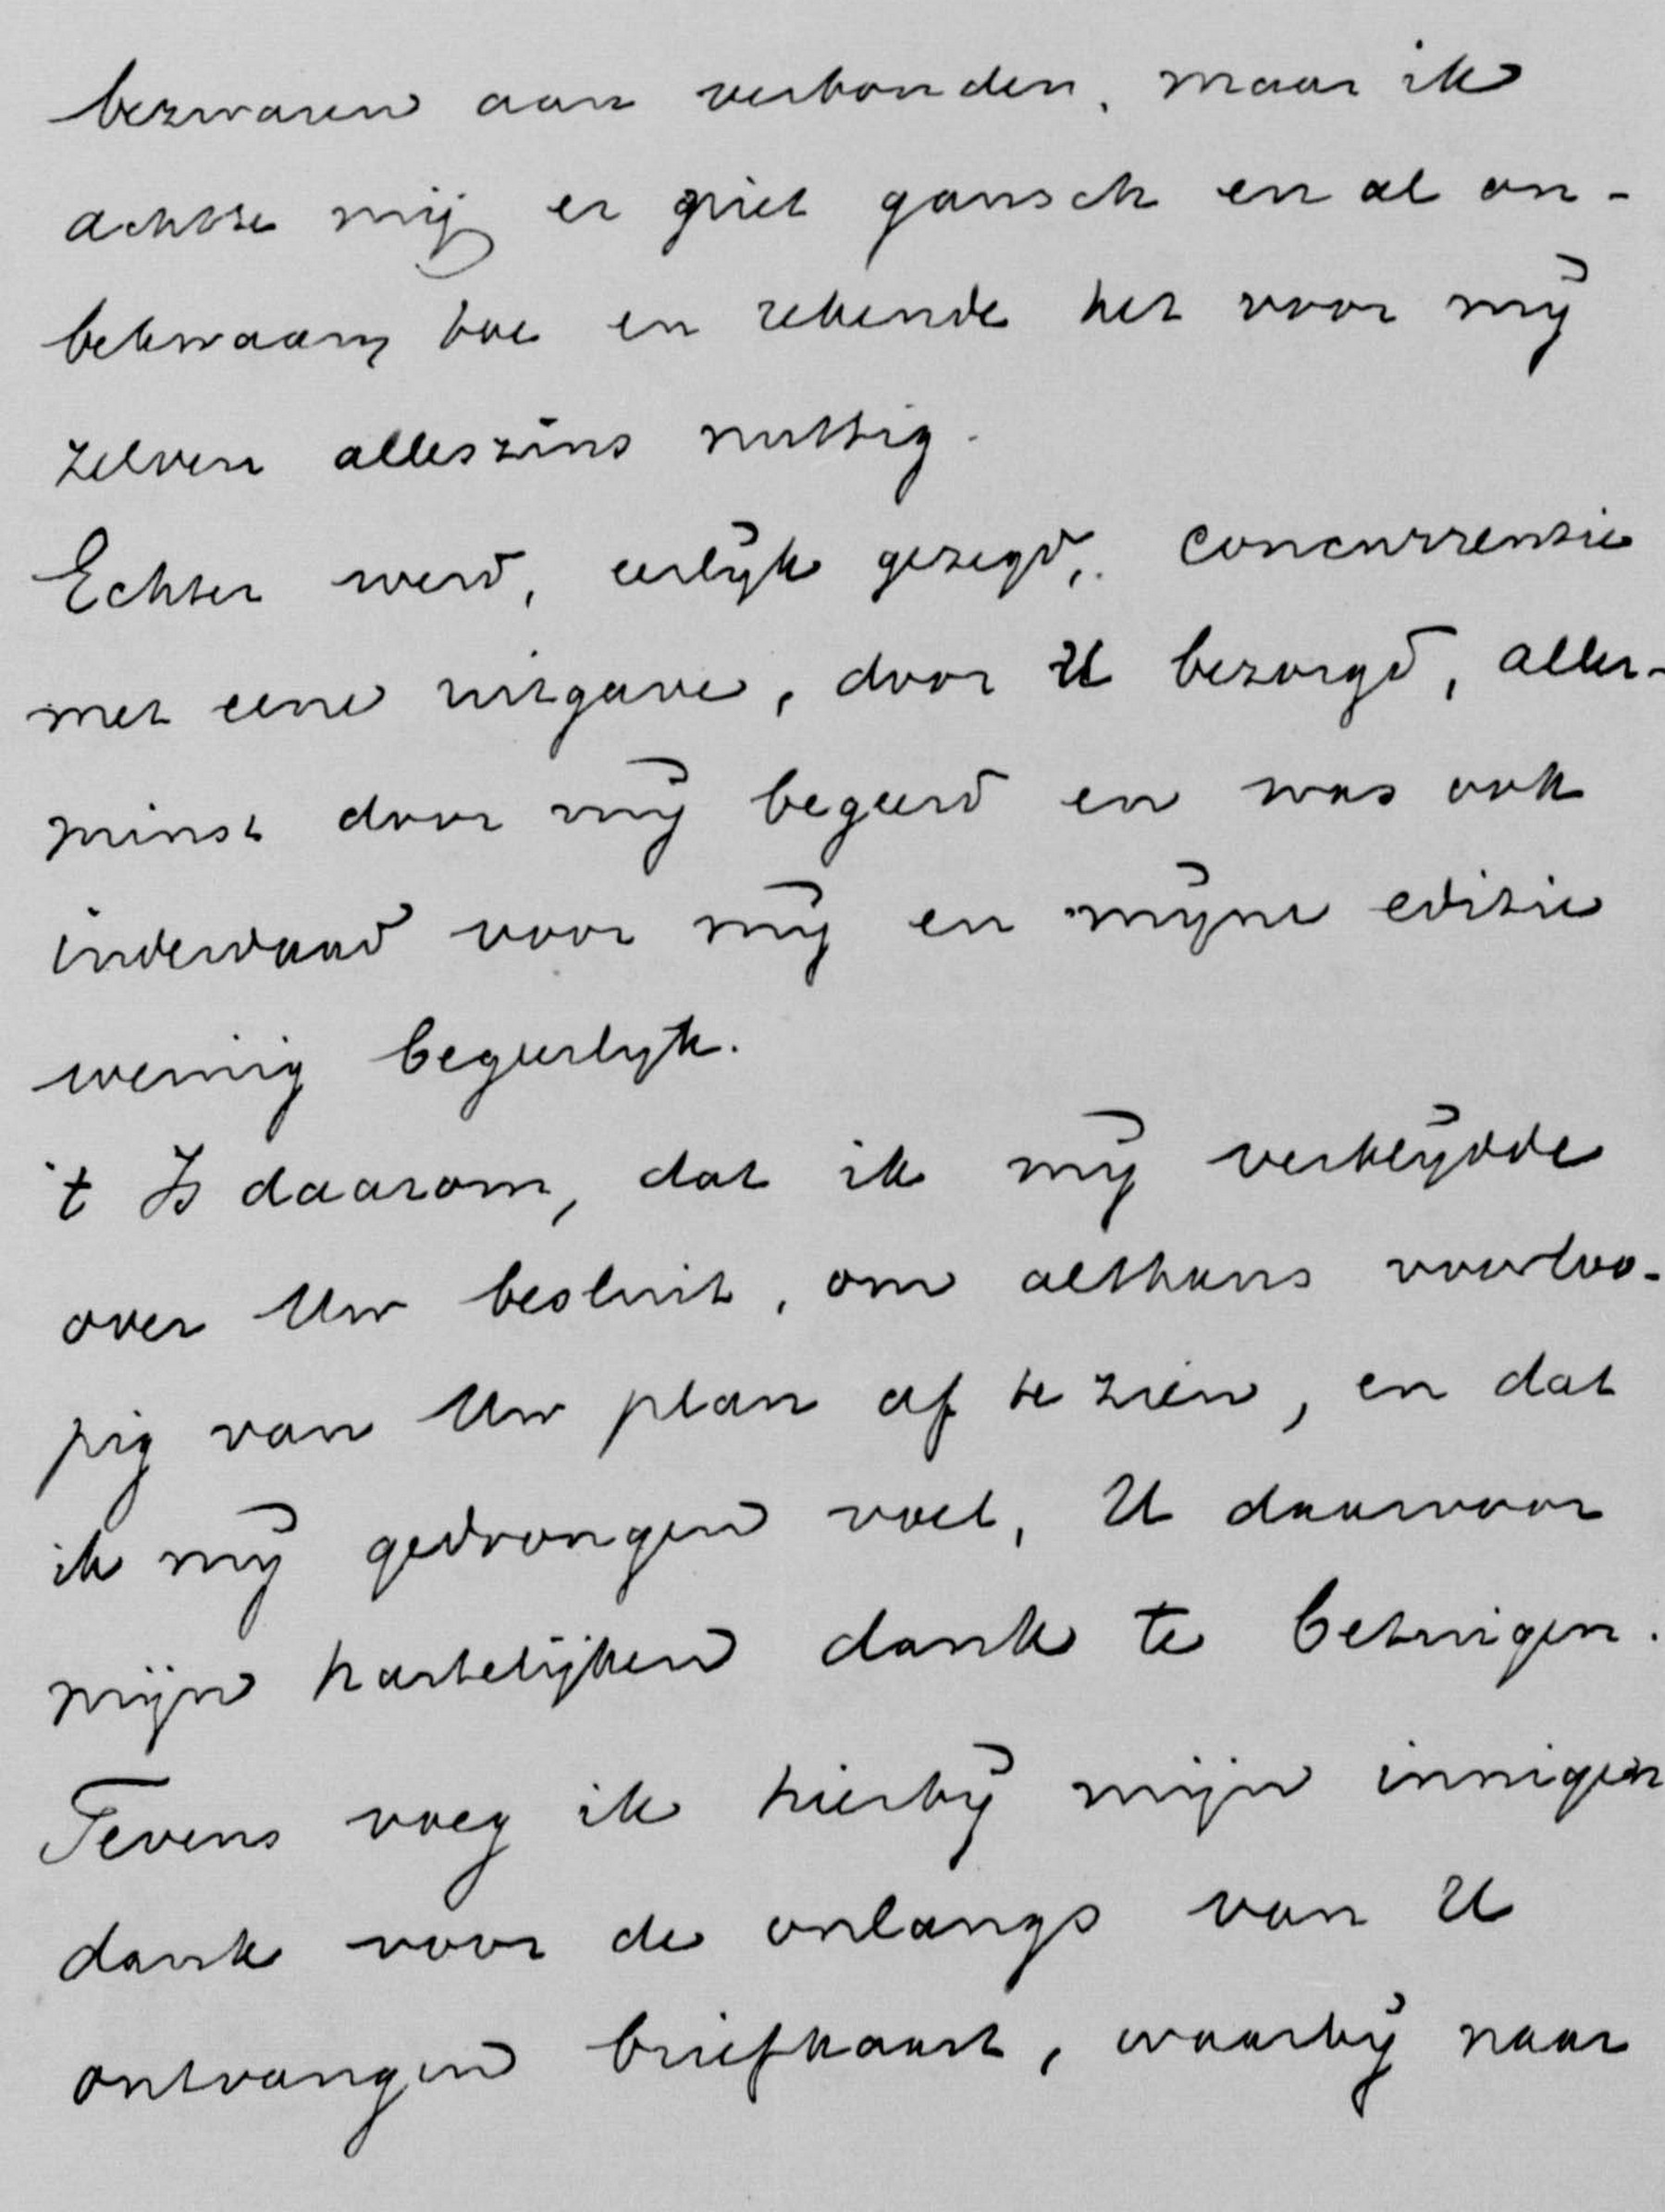 bezwaren aan verbonden, maar ik
achtte mij er niet gansch en al on-
bekwaam toe en rekende het voor mij
zelven alleszins nuttig.
Echter werd, eerlijk gezegd, concurrentie
met eene uitgave, door U bezorgd, aller-
minst door mij begeerd en was ook
inderdaad voor mij en mijne editie
weinig begeerlijk.
't Is daarom, dat ik mij verheijdde
over Uw besluit, om althans voorloo-
pig van Uw plan af te zien, en dat
ik mij gedrongen voel, U daarvoor
mijn hartelijken dank te betuigen.
Tevens voeg ik hierbij mijn innigen
dank voor de onlangs van U
ontvangen briefkaart, waarbij naar